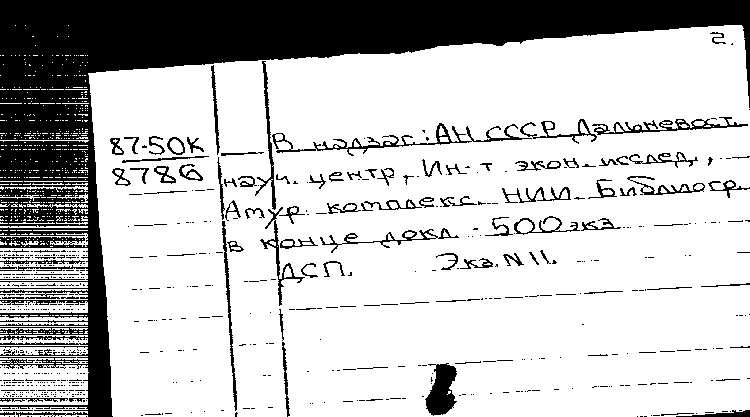 2.
87-50К
8786
В надзаг.: АН СССР. Дальневост.
науч. центр, Ин-т экон. исслед.,
Амур. комплекс. НИИ. Библиогр.
в конце докл. - 500 экз.
ДСП. Экз. N 11.